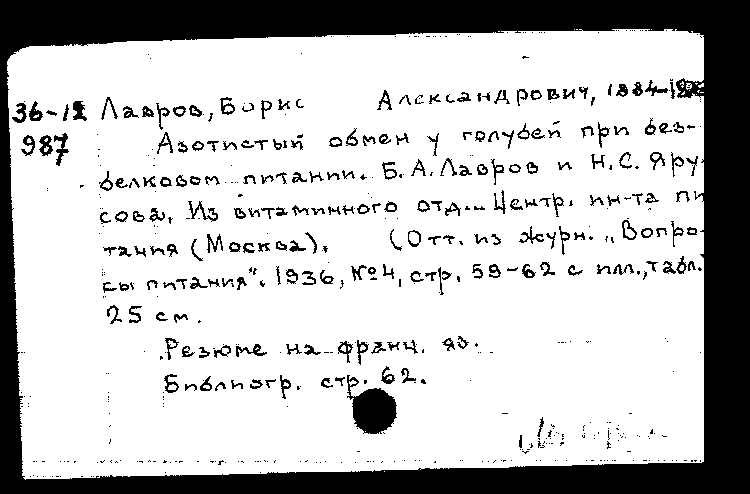 36-12 Лавров, Борис Александрович, 1884-
987 Азотистый обмен у голубей при без-
белковом питании. Б. А. Лавров и Н. С. Яру-
сова. Из витаминного отд... Центр. ин-та пи
тания (Москва). (Отт. из журн. „Вопро-
сы питания". 1936, №4, стр. 59-62 с илл., табл.
25 см.
Резюме на франц. яз.
Библиогр. стр. 62.